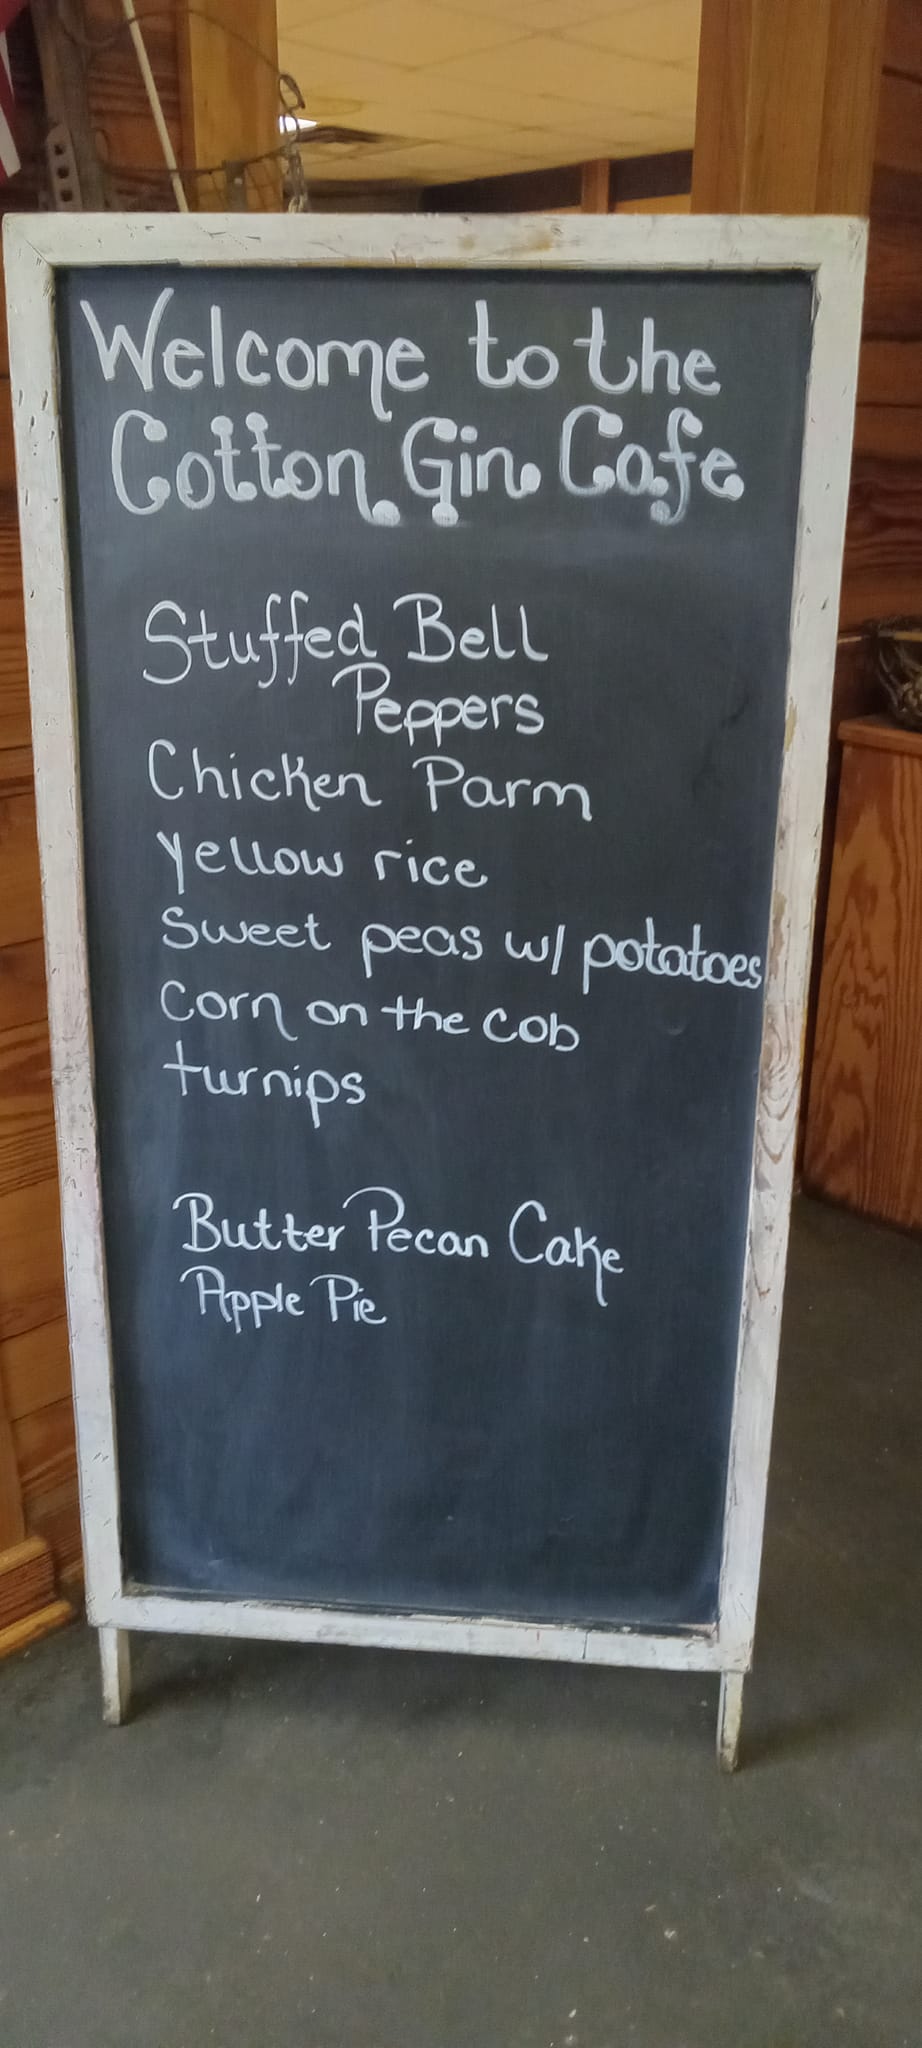 Welcome to the
Cotton Gin Cafe
Stuffed Bell
Peppers
Chicken Parm
yellow rice
Sweet peas w/ potatoes
Corn on the cob
turnips
Butter Pecan Cake
Apple Pie